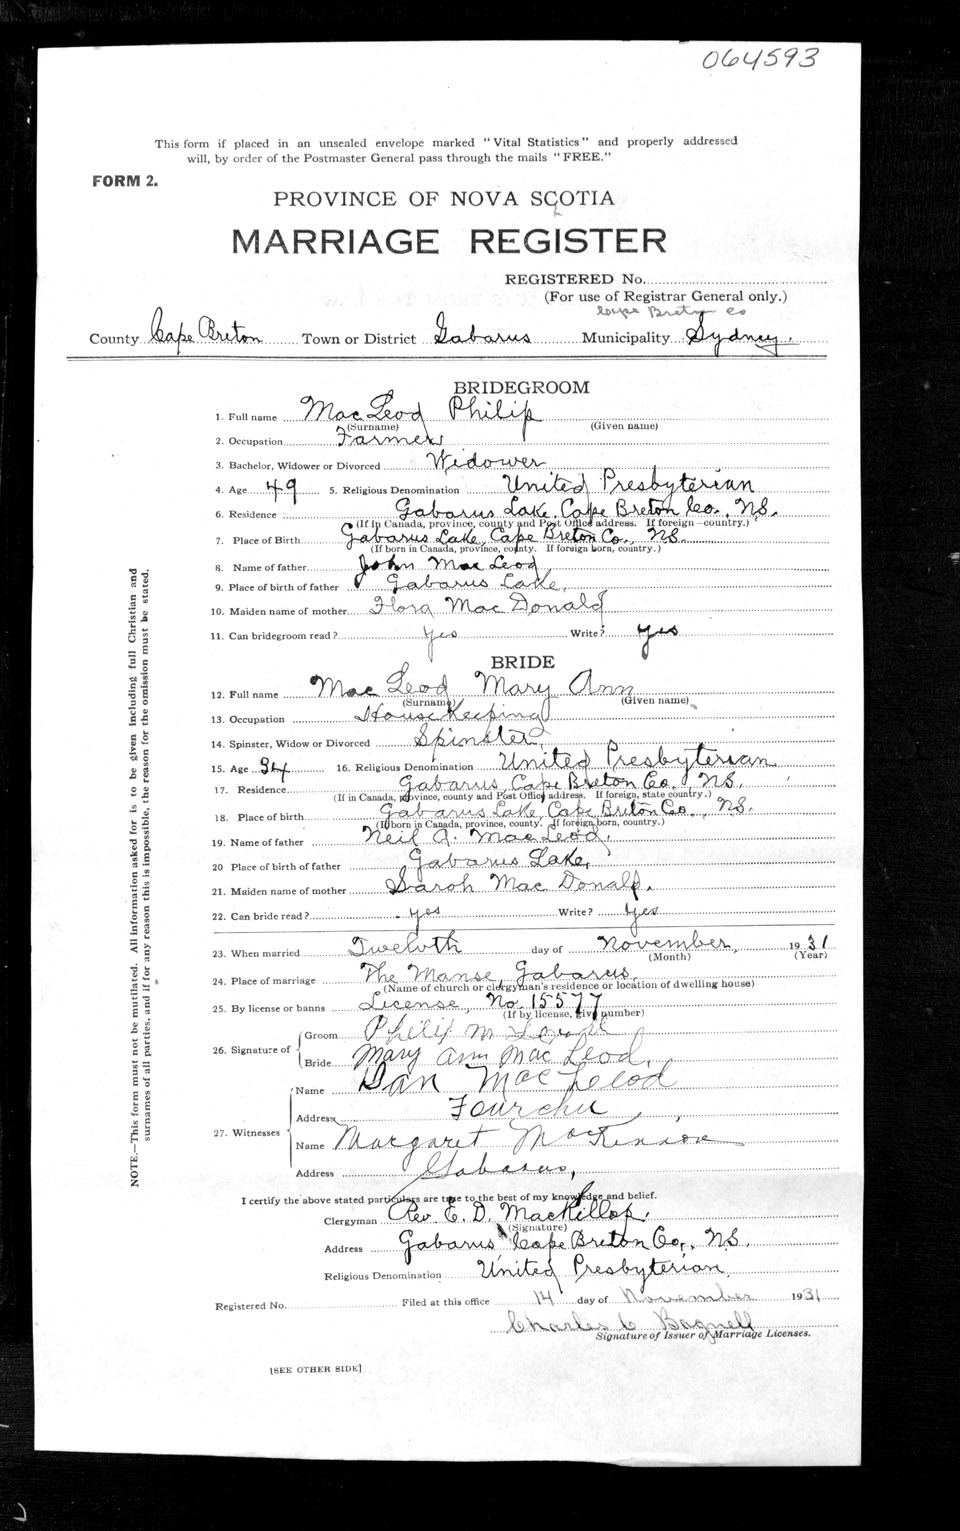 064593
This form if placed in an unsealed envelope marked "Vital Statistics" and properly addressed
will, by order of the Postmaster General pass through the mails "FREE."
FORM 2.
PROVINCE OF NOVA SCOTIA
MARRIAGE REGISTER
REGISTERED No.
(For use of Registrar General only.)
Cape Breton Co
County Cape Breton Town or District Gabarus Municipality Sydney.
BRIDEGROOM
1. Full name MacLeod Philip
(Surname) (Given name)
2. Occupation Farmer
3. Bachelor, Widower or Divorced Widower
4. Age 49 5. Religious Denomination United Presbyterian
6. Residence Gabarus Lake, Cape Breton Co., N.S.
(If in Canada, province, county and Post Office address. If foreign—country.)
7. Place of Birth Gabarus Lake, Cape Breton Co., N.S.
(If born in Canada, province, county. If foreign born, country.)
8. Name of father John MacLeod
9. Place of birth of father Gabarus Lake,
10. Maiden name of mother Flora MacDonald
11. Can bridegroom read? Yes Write? Yes
BRIDE
12. Full name MacLeod Mary Ann
(Surname) (Given name)
13. Occupation Housekeeping
14. Spinster, Widow or Divorced Spinster,
15. Age 34 16. Religious Denomination United Presbyterian
17. Residence Gabarus, Cape Breton Co., N.S.
(If in Canada, province, county and Post Office address. If foreign, state country.)
18. Place of birth Gabarus Lake, Cape Breton Co., N.S.
(If born in Canada, province, county. If foreign born, country.)
19. Name of father Neil A. MacLeod.
20 Place of birth of father Gabarus Lake,
21. Maiden name of mother Sarah MacDonald.
22. Can bride read? yes Write? Yes
23. When married Twelvth day of November, 1931
(Month) (Year)
24. Place of marriage The Manse, Gabarus,
(Name of church or clergyman's residence or location of dwelling house)
25. By license or banns License, No. 15577
(If by license, give number)
26. Signature of
Groom Philip M
Bride Mary Ann MacLeod,
27. Witnesses
Name Dan MacLeod
Address Fourchu,
Name Margaret MacKinnon
Address Gabarus,
I certify the above stated particulars are true to the best of my knowledge and belief.
Clergyman Rev. E. D. MacKillop.
(Signature)
Address Gabarus, Cape Breton Co., N.S.
Religious Denomination United Presbyterian
Registered No. Filed at this office 14 day of November 1931
Charles C Bagnell
Signature of Issuer of Marriage Licenses.
[SEE OTHER SIDE]
NOTE.—This form must not be mutilated. All information asked for is to be given including full Christian and
surnames of all parties, and if for any reason this is impossible, the reason for the omission must be stated.